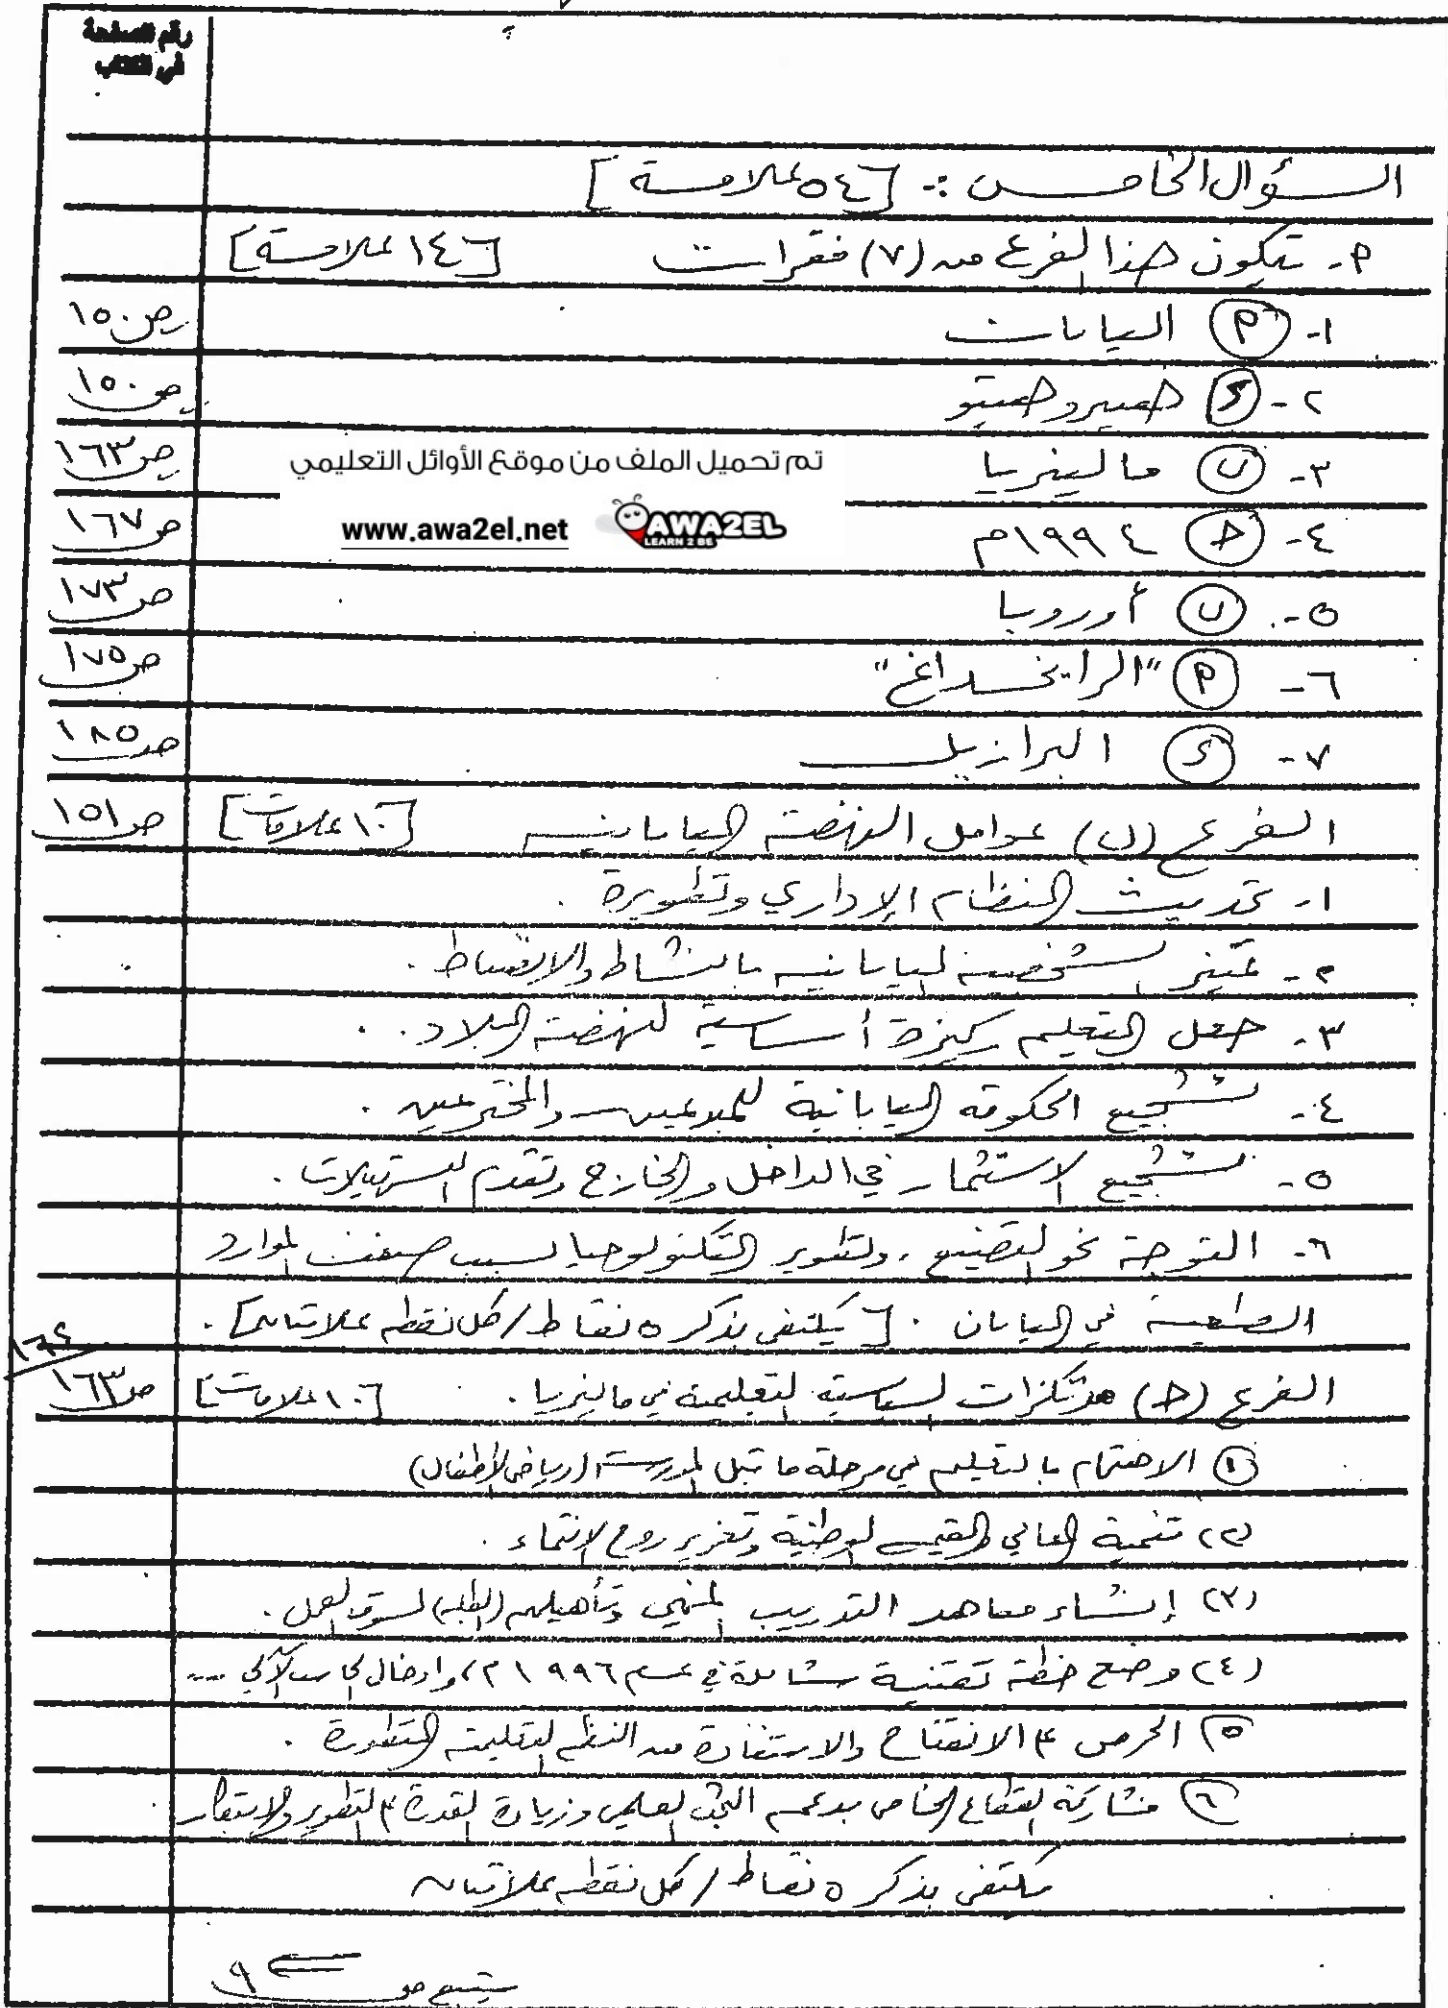 رقم الصفحة
في الكتاب
السؤال الخامس :- [٥٤ علامة]
أ- تتكون هذا الفرع من (٧) فقرات [١٤ علامة]
١- (أ) اليابان ص١٥٠
٢- (د) هيروهيتو ص١٥٠
٣- (ب) ماليزيا ص١٦٣
٤- (ج) ١٩٩٤م ص١٦٧
٥- (ب) أوروبا ص١٧٣
٦- (أ) "الرايخستاغ" ص١٧٥
٧- (د) البرازيل ص١٨٥
تم تحميل الملف من موقع الأوائل التعليمي
www.awa2el.net
AWA2EL
LEARN 2 BE
الفرع (ب) عوامل النهضة اليابانية [١٠ علامات] ص١٥١
١- تحديث النظام الإداري وتطويرة .
٢- تميز الشخصية اليابانية بالنشاط والانضباط .
٣- جعل التعليم ركيزة أساسية لنهضة البلاد .
٤- تشجيع الحكومة اليابانية للمبدعين والمخترعين .
٥- تشجيع الاستثمار في الداخل والخارج وتقدم التسهيلات .
٦- التوجة نحو التصنيع ، وتطوير التكنولوجيا بسبب ضعف الموارد
الطبيعية في اليابان . [يكتفى بذكر ٥ نقاط / كل نقطة علامتان] .
الفرع (ج) مرتكزات السياسة التعليمية في ماليزيا . [١٠ علامات] ص١٦٣
(١) الاهتمام بالتعليم في مرحلة ما قبل المدرسة (رياض الأطفال)
(٢) تنمية المعاني والقيم الوطنية وتعزيز روح الانتماء .
(٣) إنشاء معاهد التدريب المهني وتأهيلهم (الطلبة) لسوق العمل .
(٤) وضع خطة تقنية شاملة في عام ١٩٩٦م ، وادخال الحاسب الآلي ...
(٥) الحرص على الانفتاح والاستفادة من النظم التعليمية المتطورة .
(٦) مشاركة القطاع الخاص بدعم البحث العلمي وزيادة القدرة على التطوير والابتكار
يكتفى بذكر ٥ نقاط / كل نقطة علامتان
يتبع ص ٩